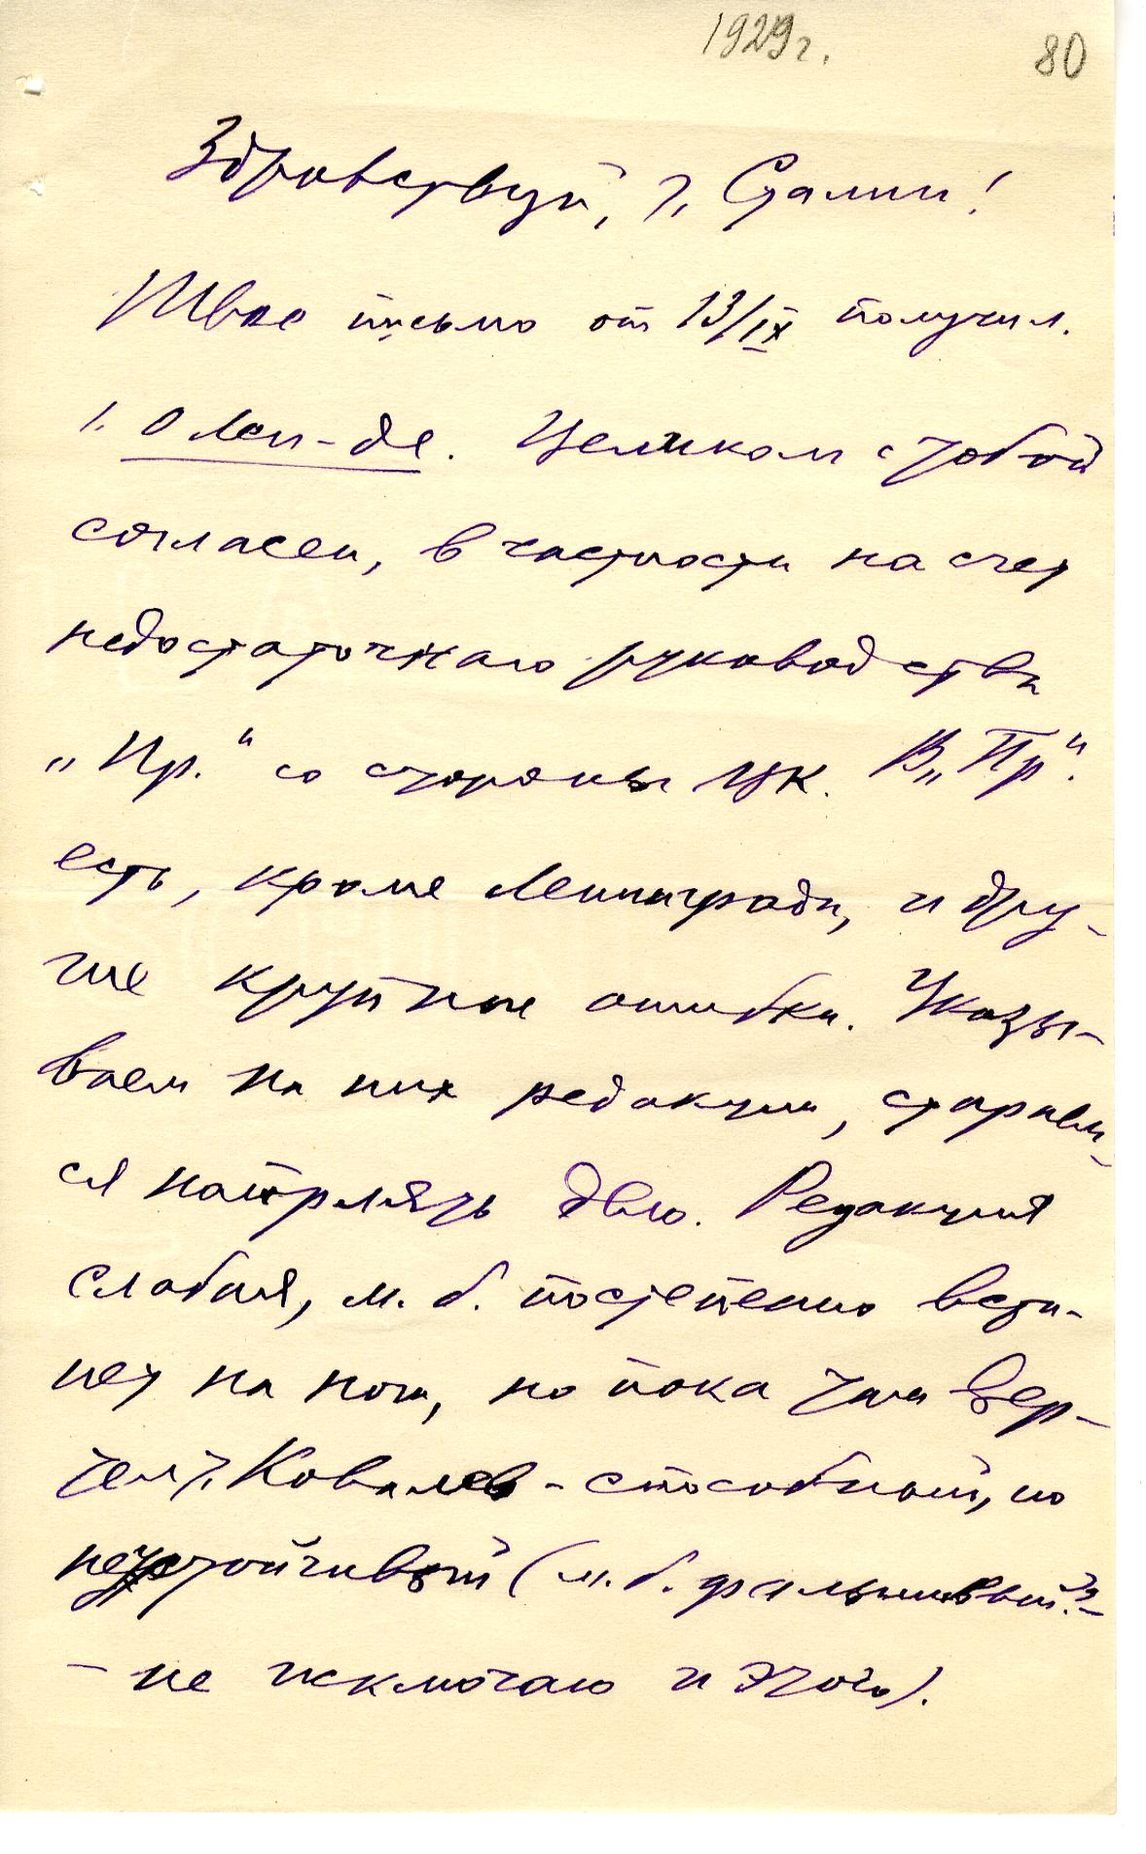 1929 г.
80
Здравствуй, т. Сталин!
Твое письмо от 13/IX получил.
1. О Лен-де. Целиком с тобой
согласен, в частности на счет
недостаточного руководства
„Пр.“ со стороны ЦК. В „Пр“.
есть, кроме Ленинграда, и дру-
гие крупные ошибки. Указы-
ваем на них редакции, стараем-
ся направлять дело. Редакция
слабая, м. б. постепенно вста-
нет на ноги, но пока там вер-
тел т. Ковалев - способный, но
неустойчивый (м. б. фальшивый? -
- не исключаю и этого).